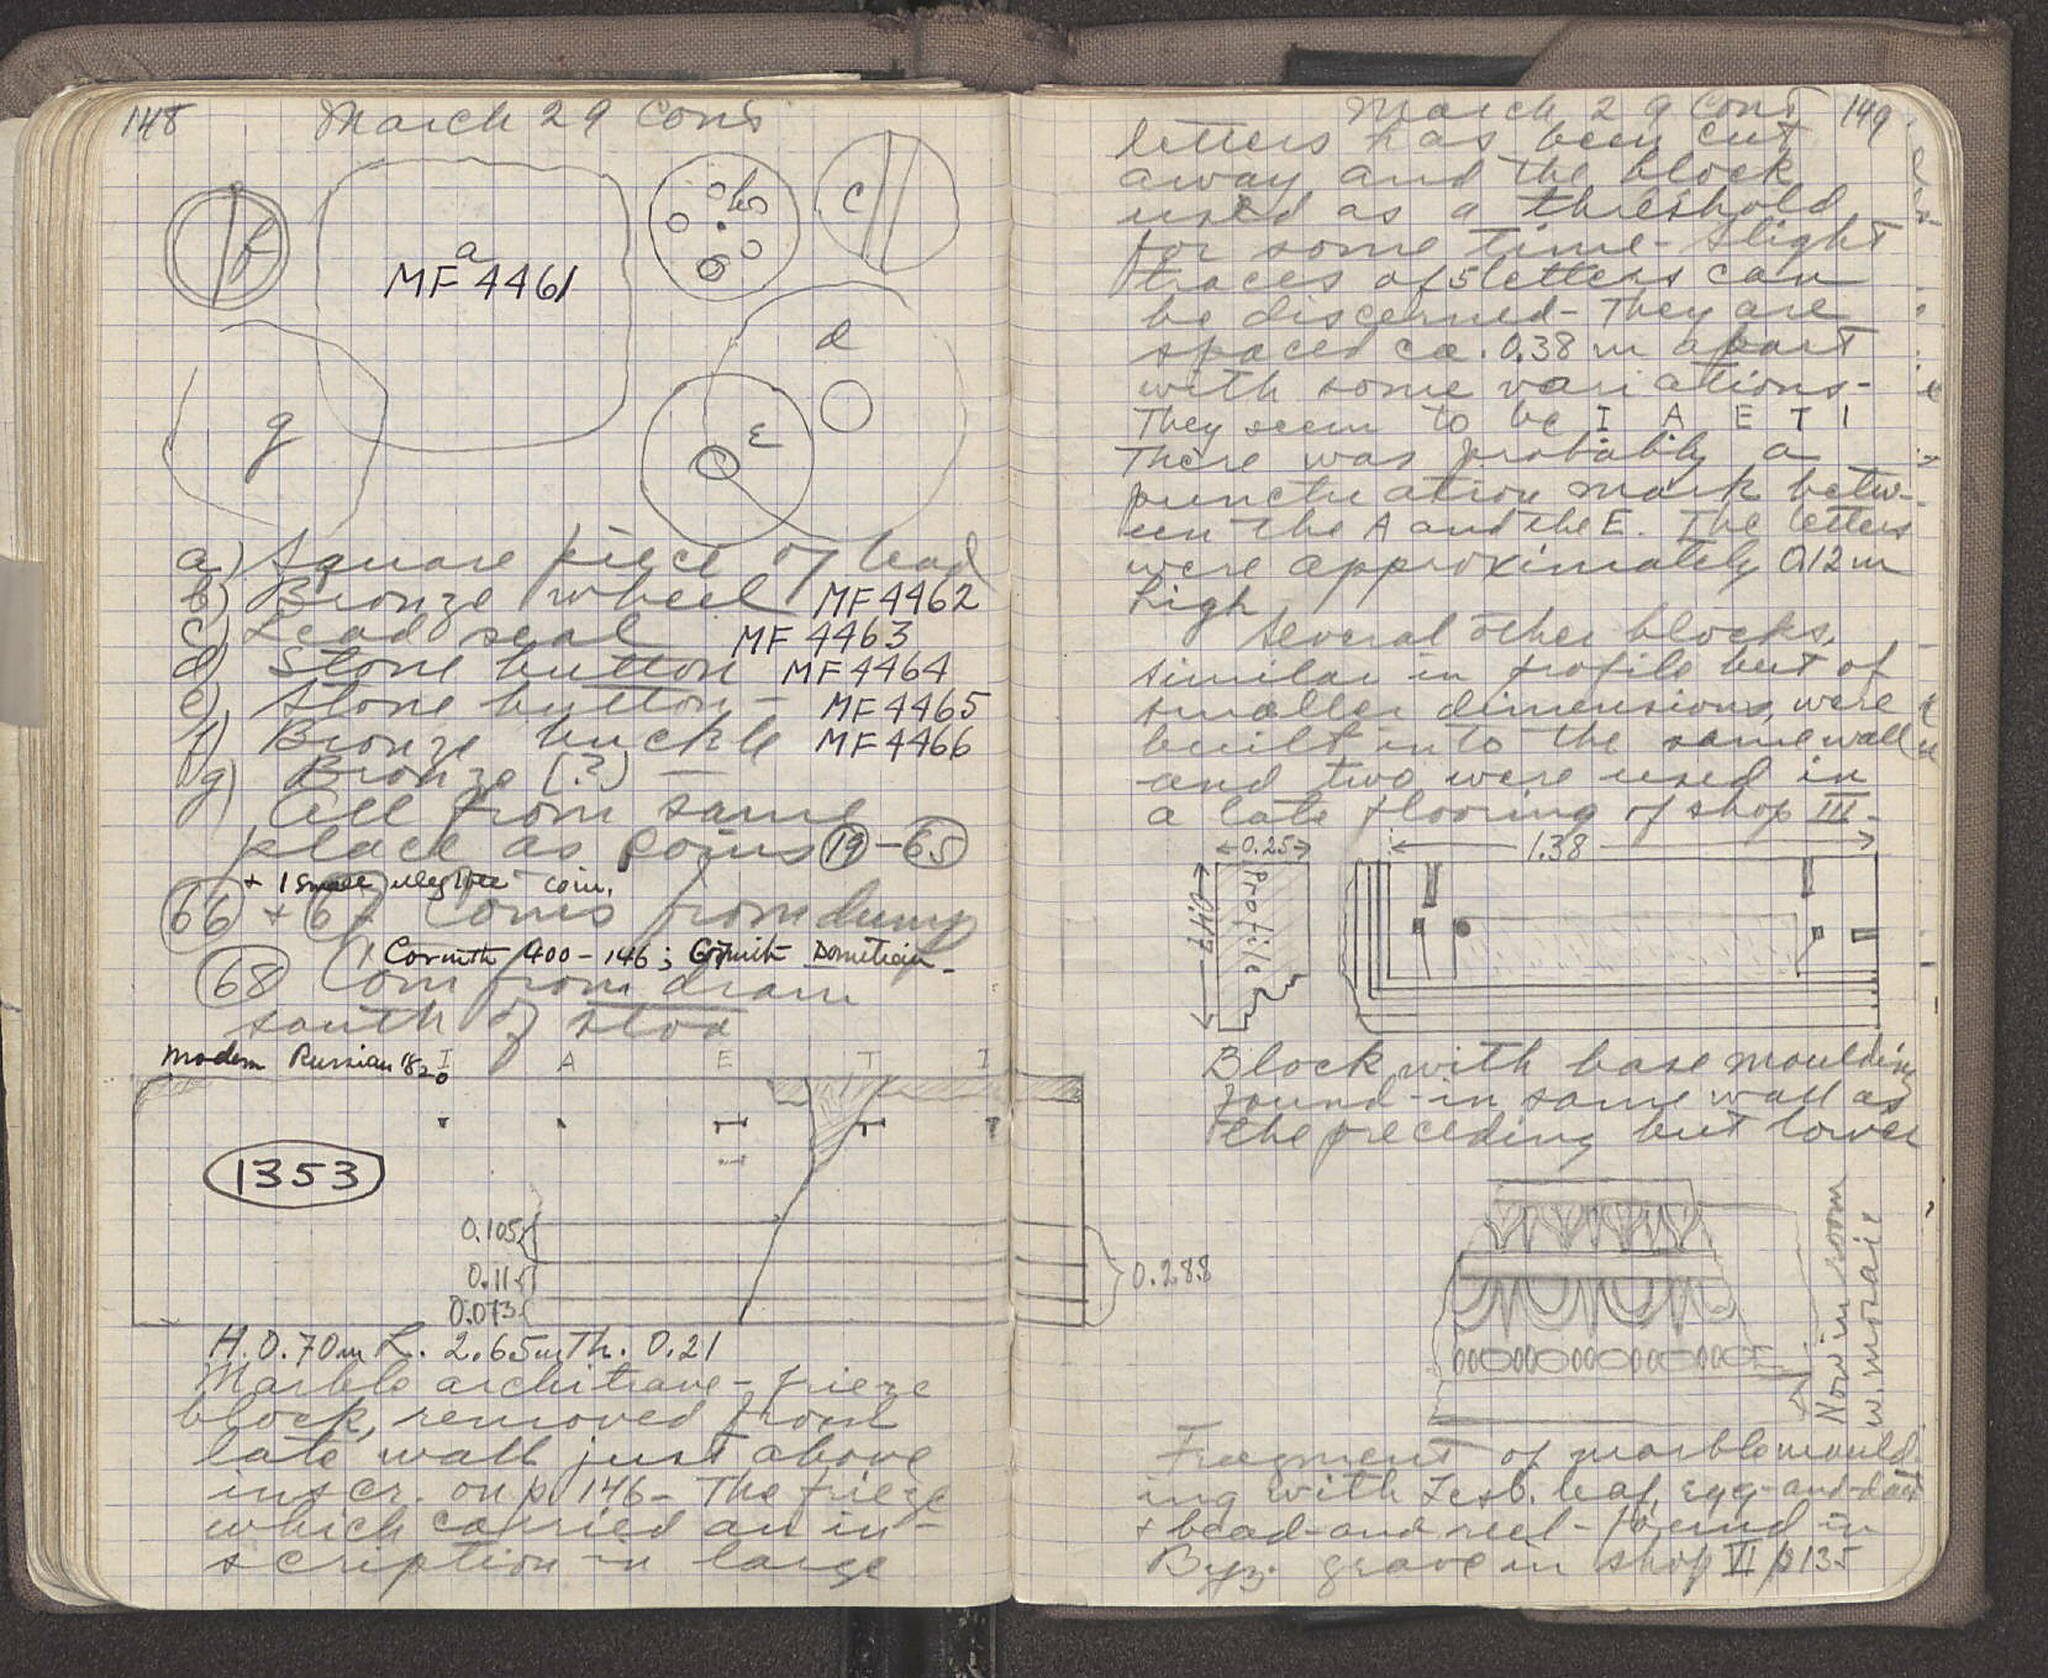 148 March 29 Cont
f
a
MF 4461
b
c
d
g
E
a) Square piece of lead
b) Bronze wheel MF 4462
c) Lead seal MF 4463
d) Stone button MF 4464
e) Stone button – MF 4465
f) Bronze buckle MF 4466
g) Bronze (?) —
All from same
place as coins 19 – 65
+ 1 small illegible coin.
66 + 67 Coins from dump
Corinth 400–146; Corinth Domitian –
68 Coin from drain
south of stoa
Modern Russian 1820
I A E T I
1353
0.105
0.11
0.073
0.288
H. 0.70m L. 2.65m Th. 0.21
Marble architrave-frieze
block, removed from
late wall just above
inscr. on p. 146 – The frieze
which carried an in-
scription in large
March 29 Cont 149
letters has been cut
away and the block
used as a threshold
for some time – Slight
traces of 5 letters can
be discerned – They are
spaced ca. 0.38 m apart
with some variations –
They seem to be I A E T I
There was probably a
punctuation mark betw-
een the A and the E. The letters
were approximately 0.12 m
high
Several other blocks,
similar in profile but of
smaller dimensions, were
built into the same wall
and two were used in
a late flooring of shop III –
0.25
1.38
Profile
Block with base moulding
found in same wall as
the preceding but lower
Now in room
w. mosaic
Fragment of marble mould-
ing with Lesb. leaf, egg-and-dart
+ bead-and-reel – found in
Byz. grave in shop VI p 135